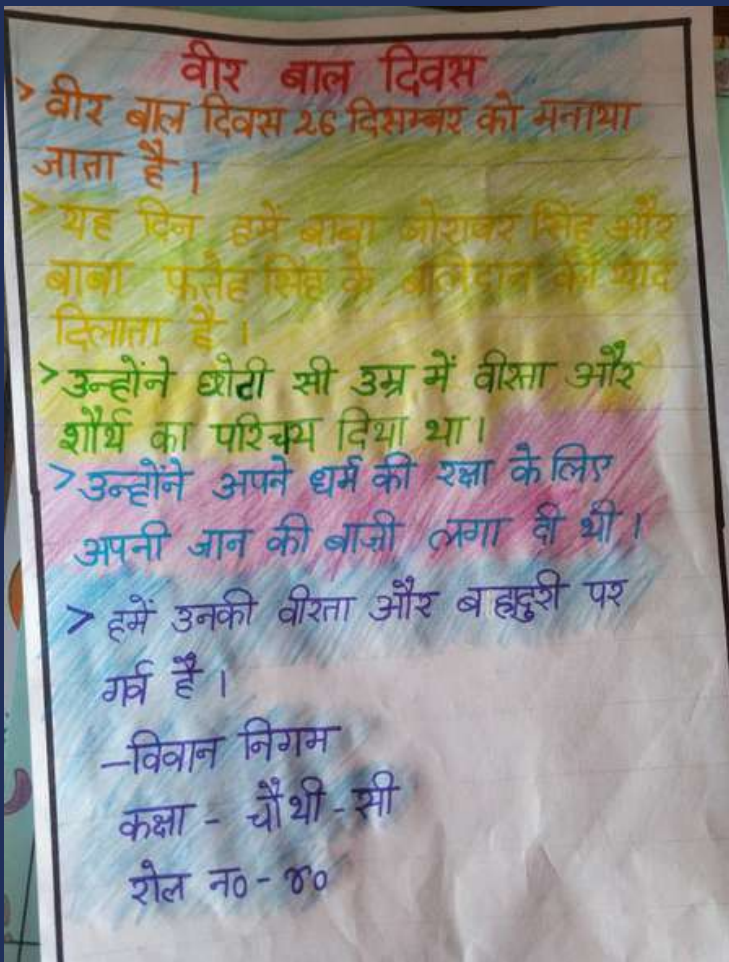 वीर बाल दिवस
> वीर बाल दिवस 26 दिसम्बर को मनाया
जाता है।
> यह दिन हमें बाबा जोरावर सिंह और
बाबा फतेह सिंह के बलिदान की याद
दिलाता है।
> उन्होंने छोटी सी उम्र में वीरता और
शौर्य का परिचय दिया था।
> उन्होंने अपने धर्म की रक्षा के लिए
अपनी जान की बाज़ी लगा दी थी।
> हमें उनकी वीरता और बहादुरी पर
गर्व है।
– विवान निगम
कक्षा - चौथी - सी
रोल न० - ४०